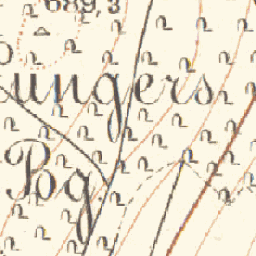 689,3
ungers
Bg.